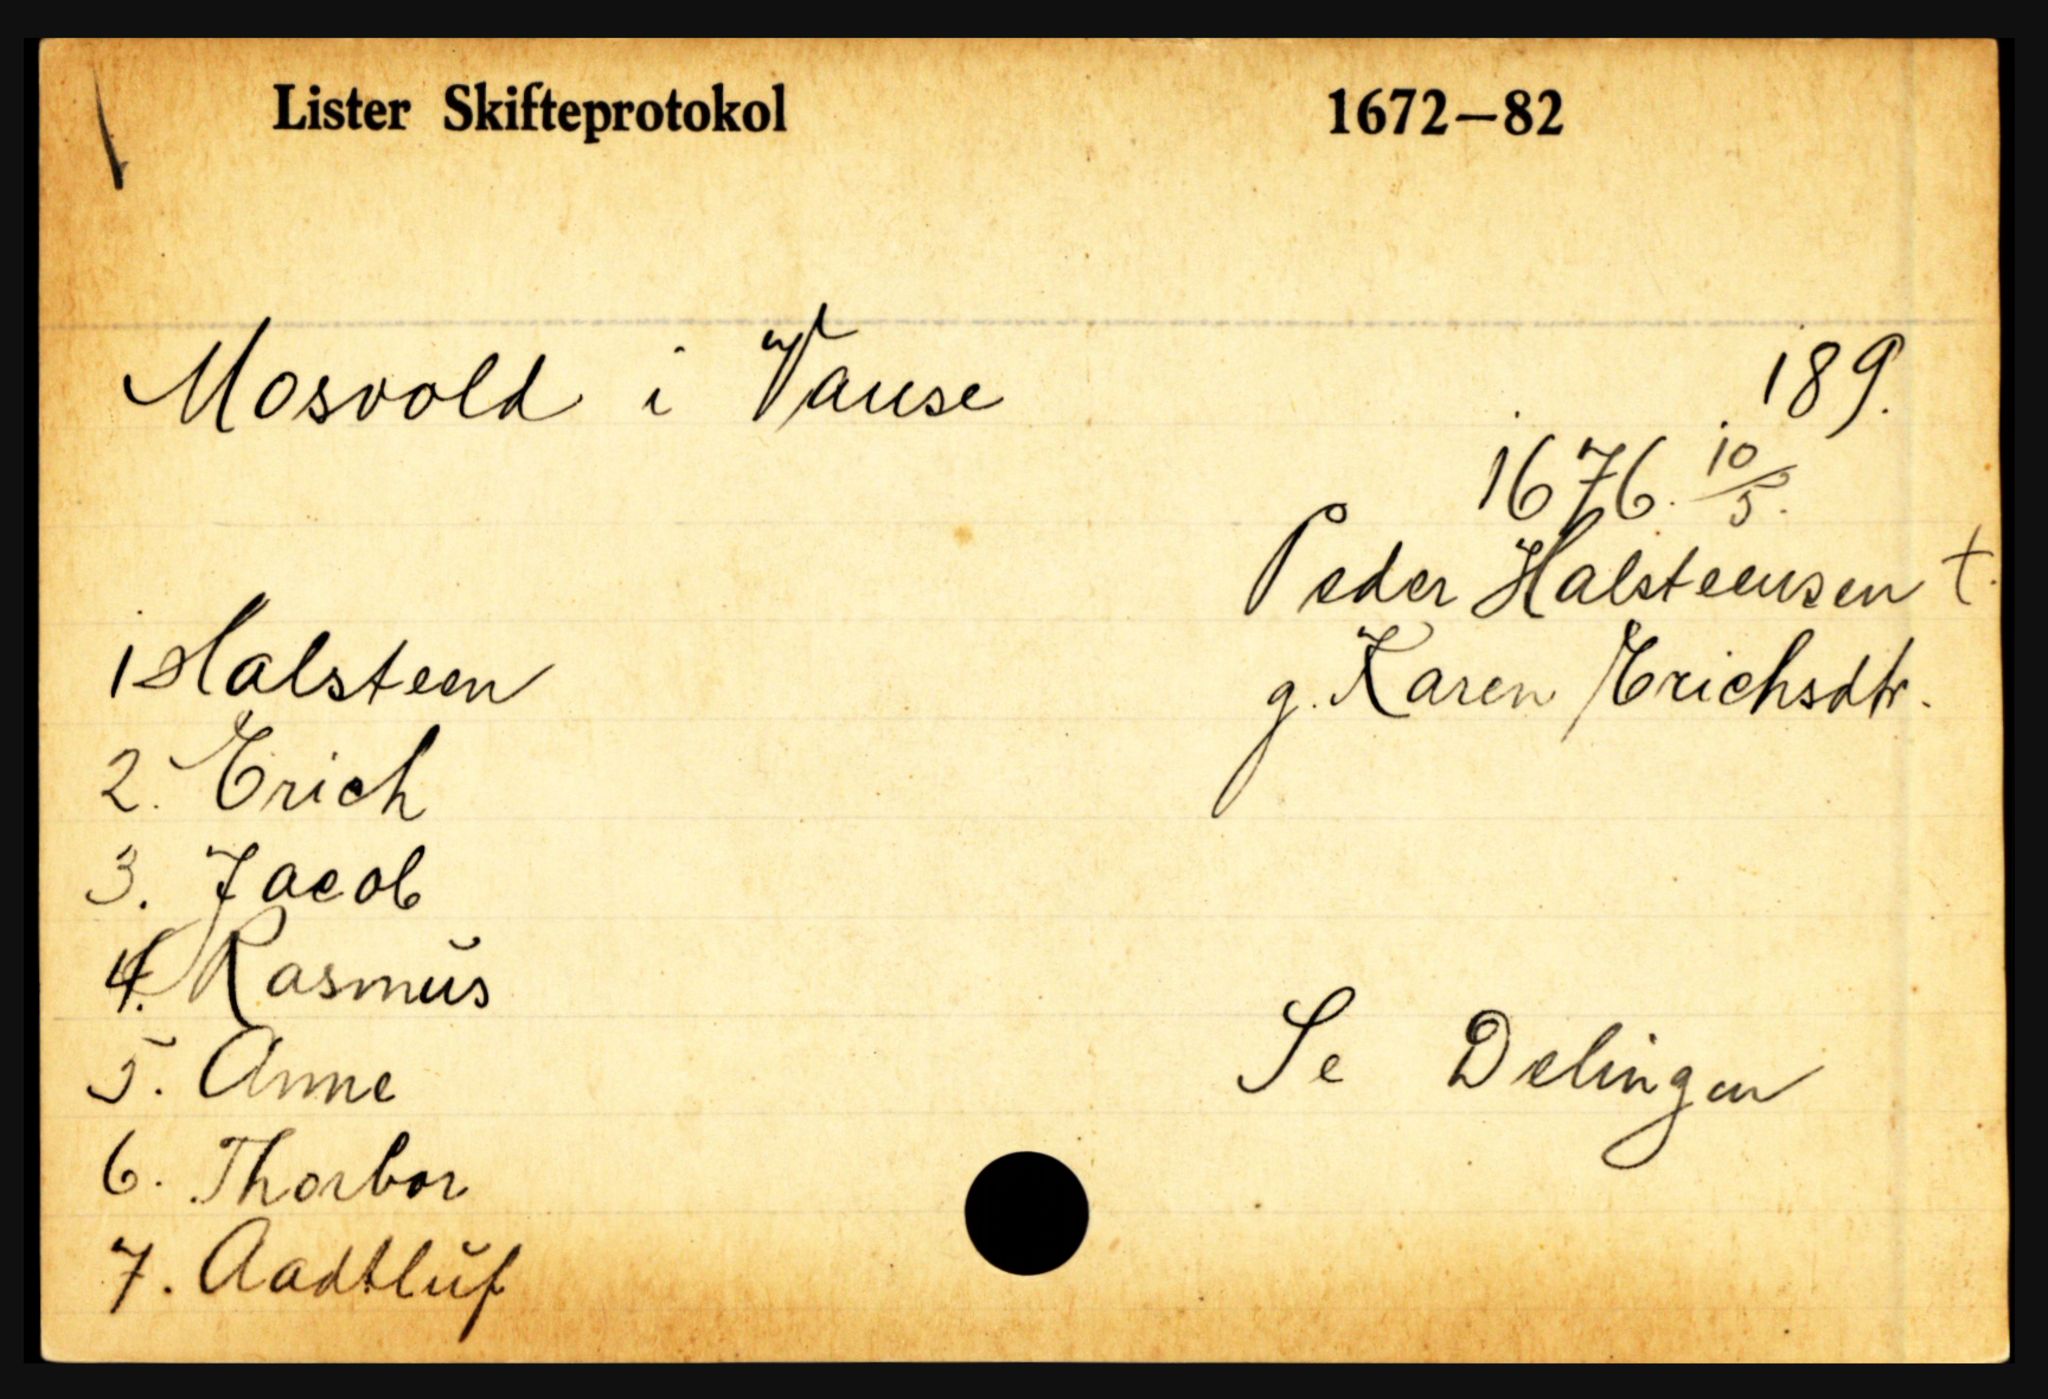 Lister Skifteprotokol 1672–82
Mosvold i Vanse 189.
1676. 10/5.
Peder Halsteensen †.
g. Karen Erichsdtr.
1 Halsteen
2. Erich
3. Jacob
4. Rasmus
5. Anne
6. Thorbor
7. Aadtluf
Se Delingen